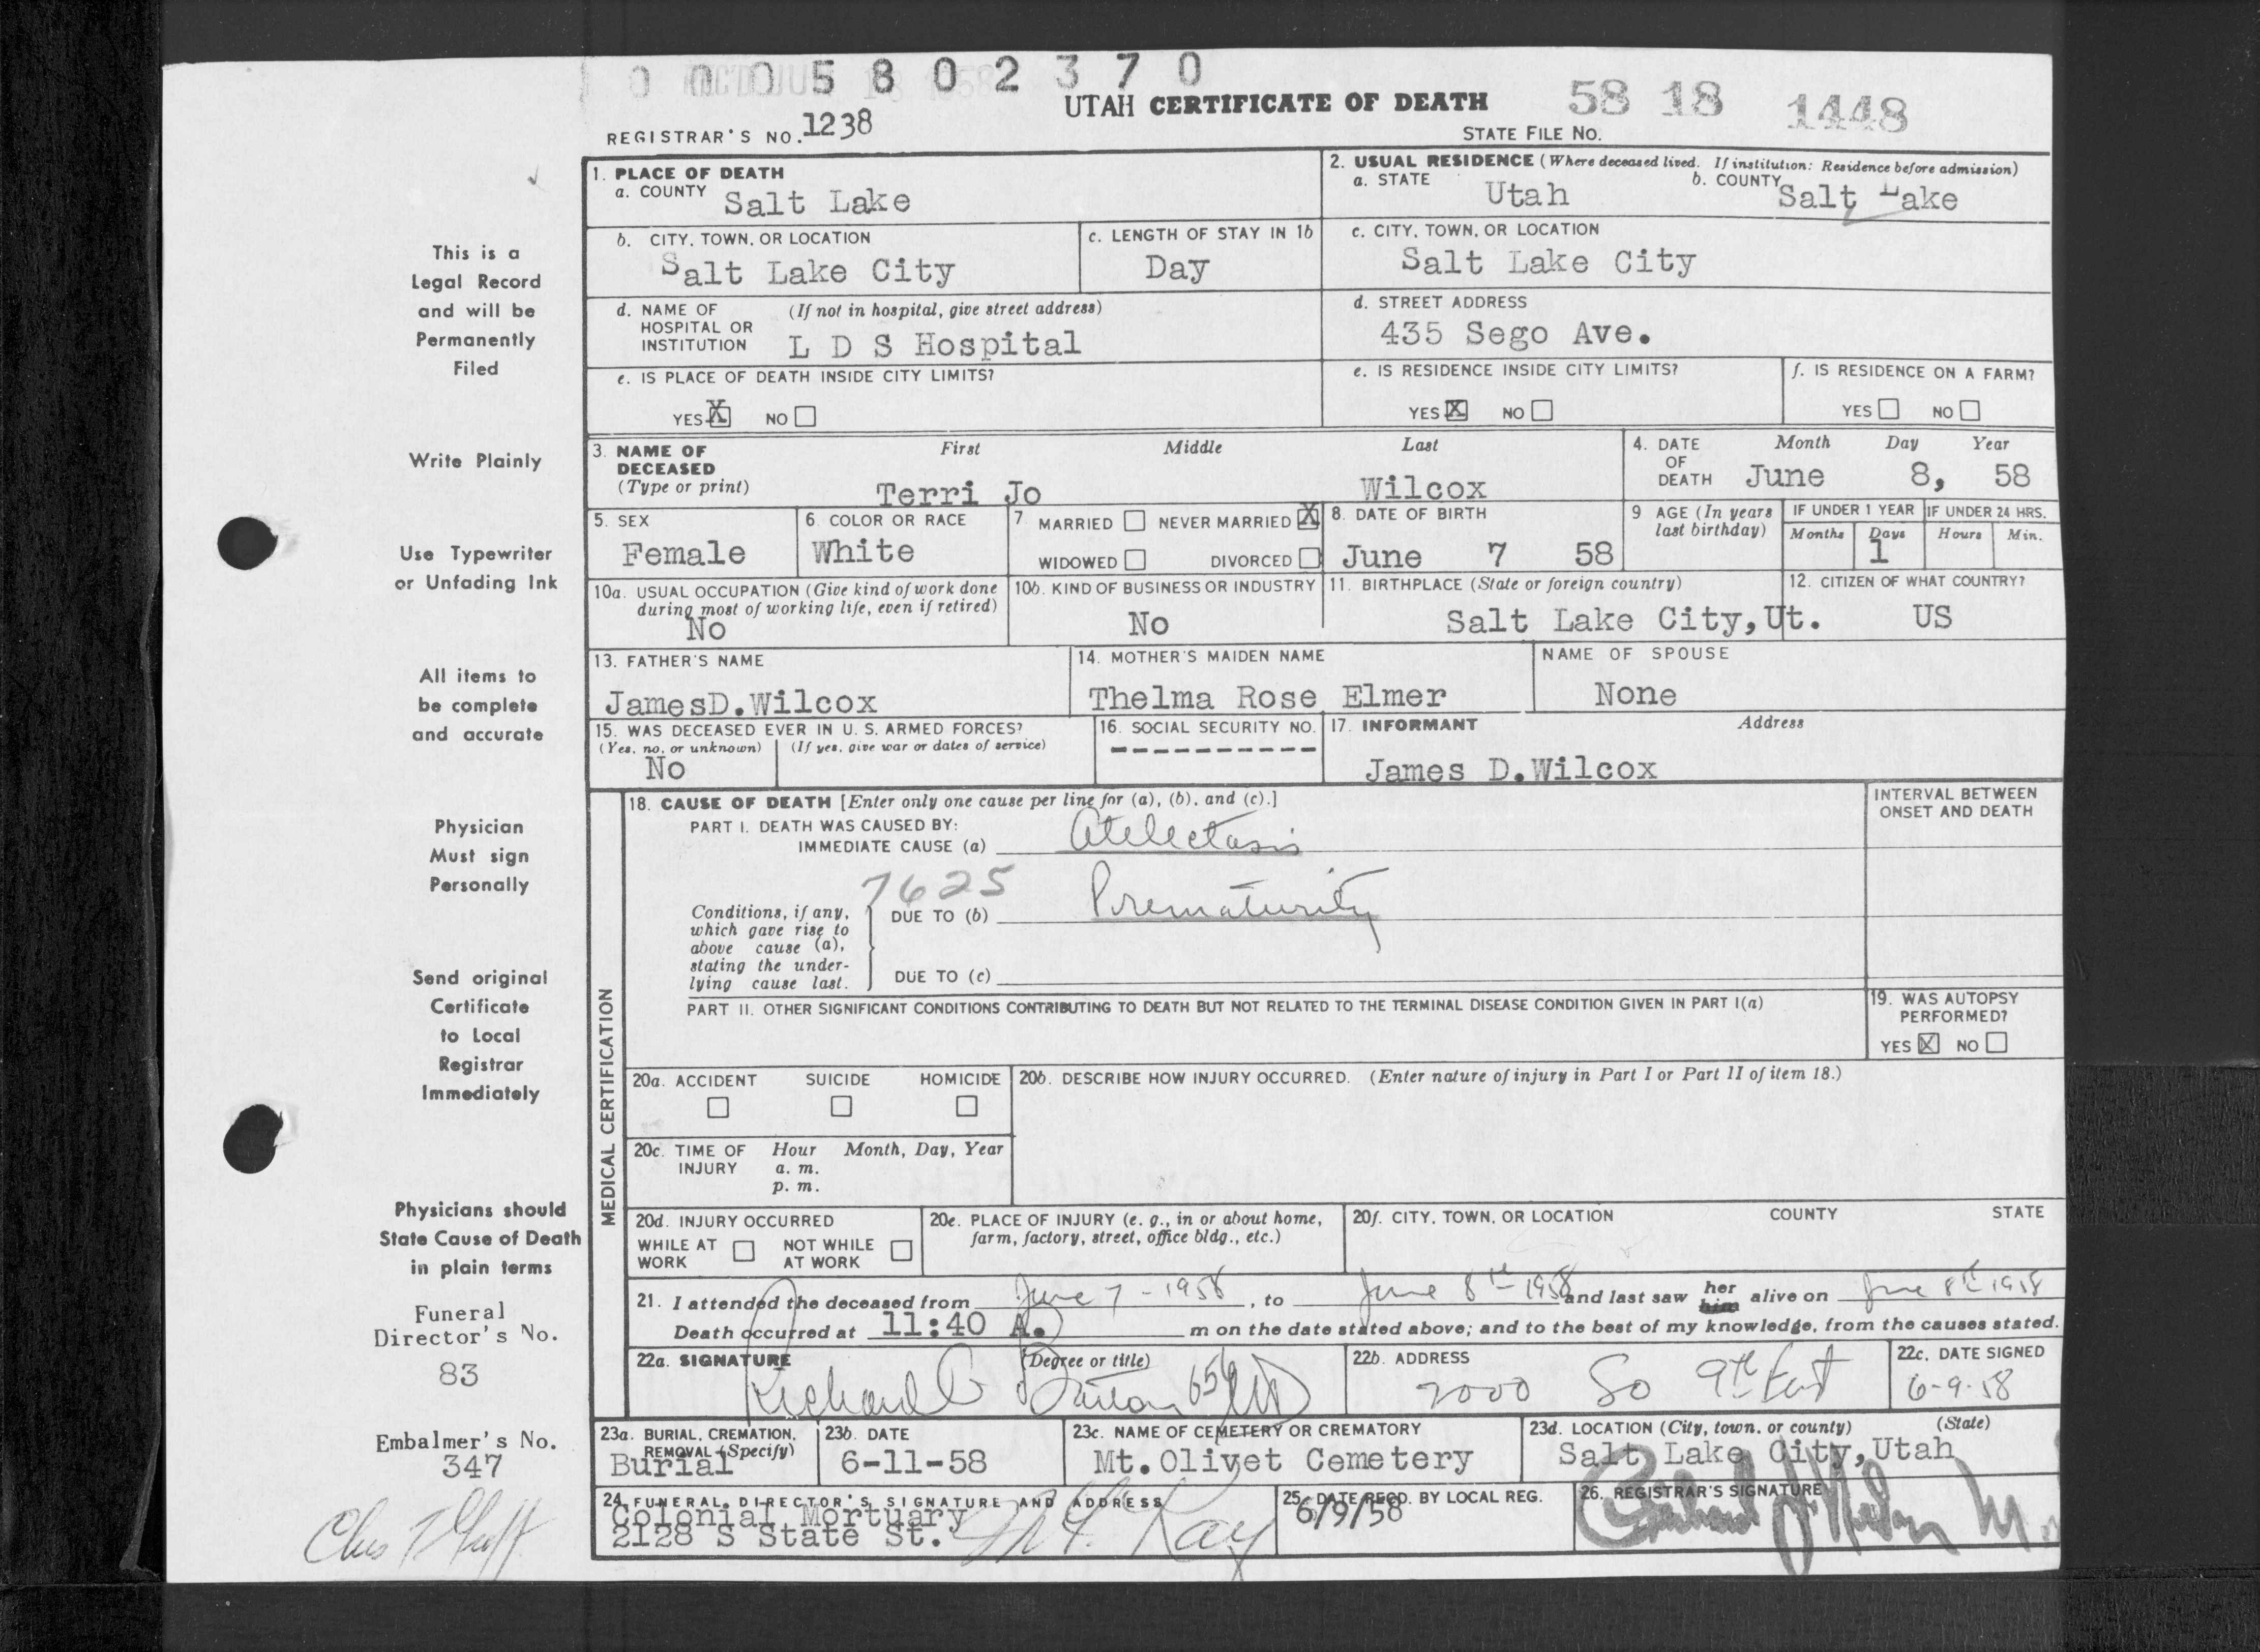 0 0 0 5 8 0 2 3 7 0
UTAH CERTIFICATE OF DEATH 58 18 1448
REGISTRAR'S NO. 1238 STATE FILE NO.
This is a
Legal Record
and will be
Permanently
Filed
Write Plainly
Use Typewriter
or Unfading Ink
All items to
be complete
and accurate
Physician
Must sign
Personally
Send original
Certificate
to Local
Registrar
Immediately
Physicians should
State Cause of Death
in plain terms
Funeral
Director's No.
83
Embalmer's No.
347
1. PLACE OF DEATH
a. COUNTY Salt Lake
2. USUAL RESIDENCE (Where deceased lived. If institution: Residence before admission)
a. STATE Utah b. COUNTY Salt Lake
b. CITY, TOWN, OR LOCATION
Salt Lake City
c. LENGTH OF STAY IN 1b
Day
c. CITY, TOWN, OR LOCATION
Salt Lake City
d. NAME OF HOSPITAL OR INSTITUTION (If not in hospital, give street address)
L D S Hospital
d. STREET ADDRESS
435 Sego Ave.
e. IS PLACE OF DEATH INSIDE CITY LIMITS?
YES X NO
e. IS RESIDENCE INSIDE CITY LIMITS?
YES X NO
f. IS RESIDENCE ON A FARM?
YES NO
3. NAME OF DECEASED (Type or print) First Middle Last
Terri Jo Wilcox
4. DATE OF DEATH Month Day Year
June 8, 58
5. SEX
Female
6. COLOR OR RACE
White
7 MARRIED NEVER MARRIED X
WIDOWED DIVORCED
8. DATE OF BIRTH
June 7 58
9 AGE (In years last birthday)
IF UNDER 1 YEAR IF UNDER 24 HRS.
Months Days Hours Min.
1
10a. USUAL OCCUPATION (Give kind of work done during most of working life, even if retired)
No
10b. KIND OF BUSINESS OR INDUSTRY
No
11. BIRTHPLACE (State or foreign country)
Salt Lake City, Ut.
12. CITIZEN OF WHAT COUNTRY?
US
13. FATHER'S NAME
JamesD.Wilcox
14. MOTHER'S MAIDEN NAME
Thelma Rose Elmer
NAME OF SPOUSE
None
15. WAS DECEASED EVER IN U. S. ARMED FORCES?
(Yes, no, or unknown) (If yes, give war or dates of service)
No
16. SOCIAL SECURITY NO.
----------
17. INFORMANT Address
James D.Wilcox
MEDICAL CERTIFICATION
18. CAUSE OF DEATH [Enter only one cause per line for (a), (b), and (c).]
PART I. DEATH WAS CAUSED BY:
IMMEDIATE CAUSE (a) Atelectasis
INTERVAL BETWEEN ONSET AND DEATH
7625
Conditions, if any, which gave rise to above cause (a), stating the underlying cause last.
DUE TO (b) Prematurity
DUE TO (c)
PART II. OTHER SIGNIFICANT CONDITIONS CONTRIBUTING TO DEATH BUT NOT RELATED TO THE TERMINAL DISEASE CONDITION GIVEN IN PART I(a)
19. WAS AUTOPSY PERFORMED?
YES X NO
20a. ACCIDENT SUICIDE HOMICIDE
20b. DESCRIBE HOW INJURY OCCURRED. (Enter nature of injury in Part I or Part II of item 18.)
20c. TIME OF INJURY Hour Month, Day, Year
a. m.
p. m.
20d. INJURY OCCURRED
WHILE AT WORK NOT WHILE AT WORK
20e. PLACE OF INJURY (e. g., in or about home, farm, factory, street, office bldg., etc.)
20f. CITY, TOWN, OR LOCATION COUNTY STATE
21. I attended the deceased from June 7 - 1958, to June 8th - 1958 and last saw her him alive on June 8th 1958
Death occurred at 11:40 A. m on the date stated above; and to the best of my knowledge, from the causes stated.
22a. SIGNATURE (Degree or title)
Richard MD
22b. ADDRESS
2000 So 9th East
22c. DATE SIGNED
6-9-58
23a. BURIAL, CREMATION, REMOVAL (Specify)
Burial
23b. DATE
6-11-58
23c. NAME OF CEMETERY OR CREMATORY
Mt.Olivet Cemetery
23d. LOCATION (City, town, or county) (State)
Salt Lake City, Utah
24. FUNERAL DIRECTOR'S SIGNATURE AND ADDRESS
Colonial Mortuary
2128 S State St.
25. DATE RECD. BY LOCAL REG.
6/9/58
26. REGISTRAR'S SIGNATURE